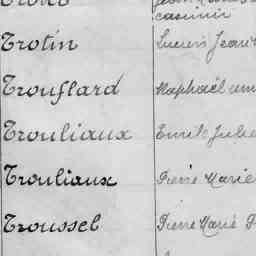 casimir
Trotin Lucien Jean
Trouffard Raphaël
Trouliaux Emile Jules
Trouliaux Pierre Marie
Troussel Pierre Marie